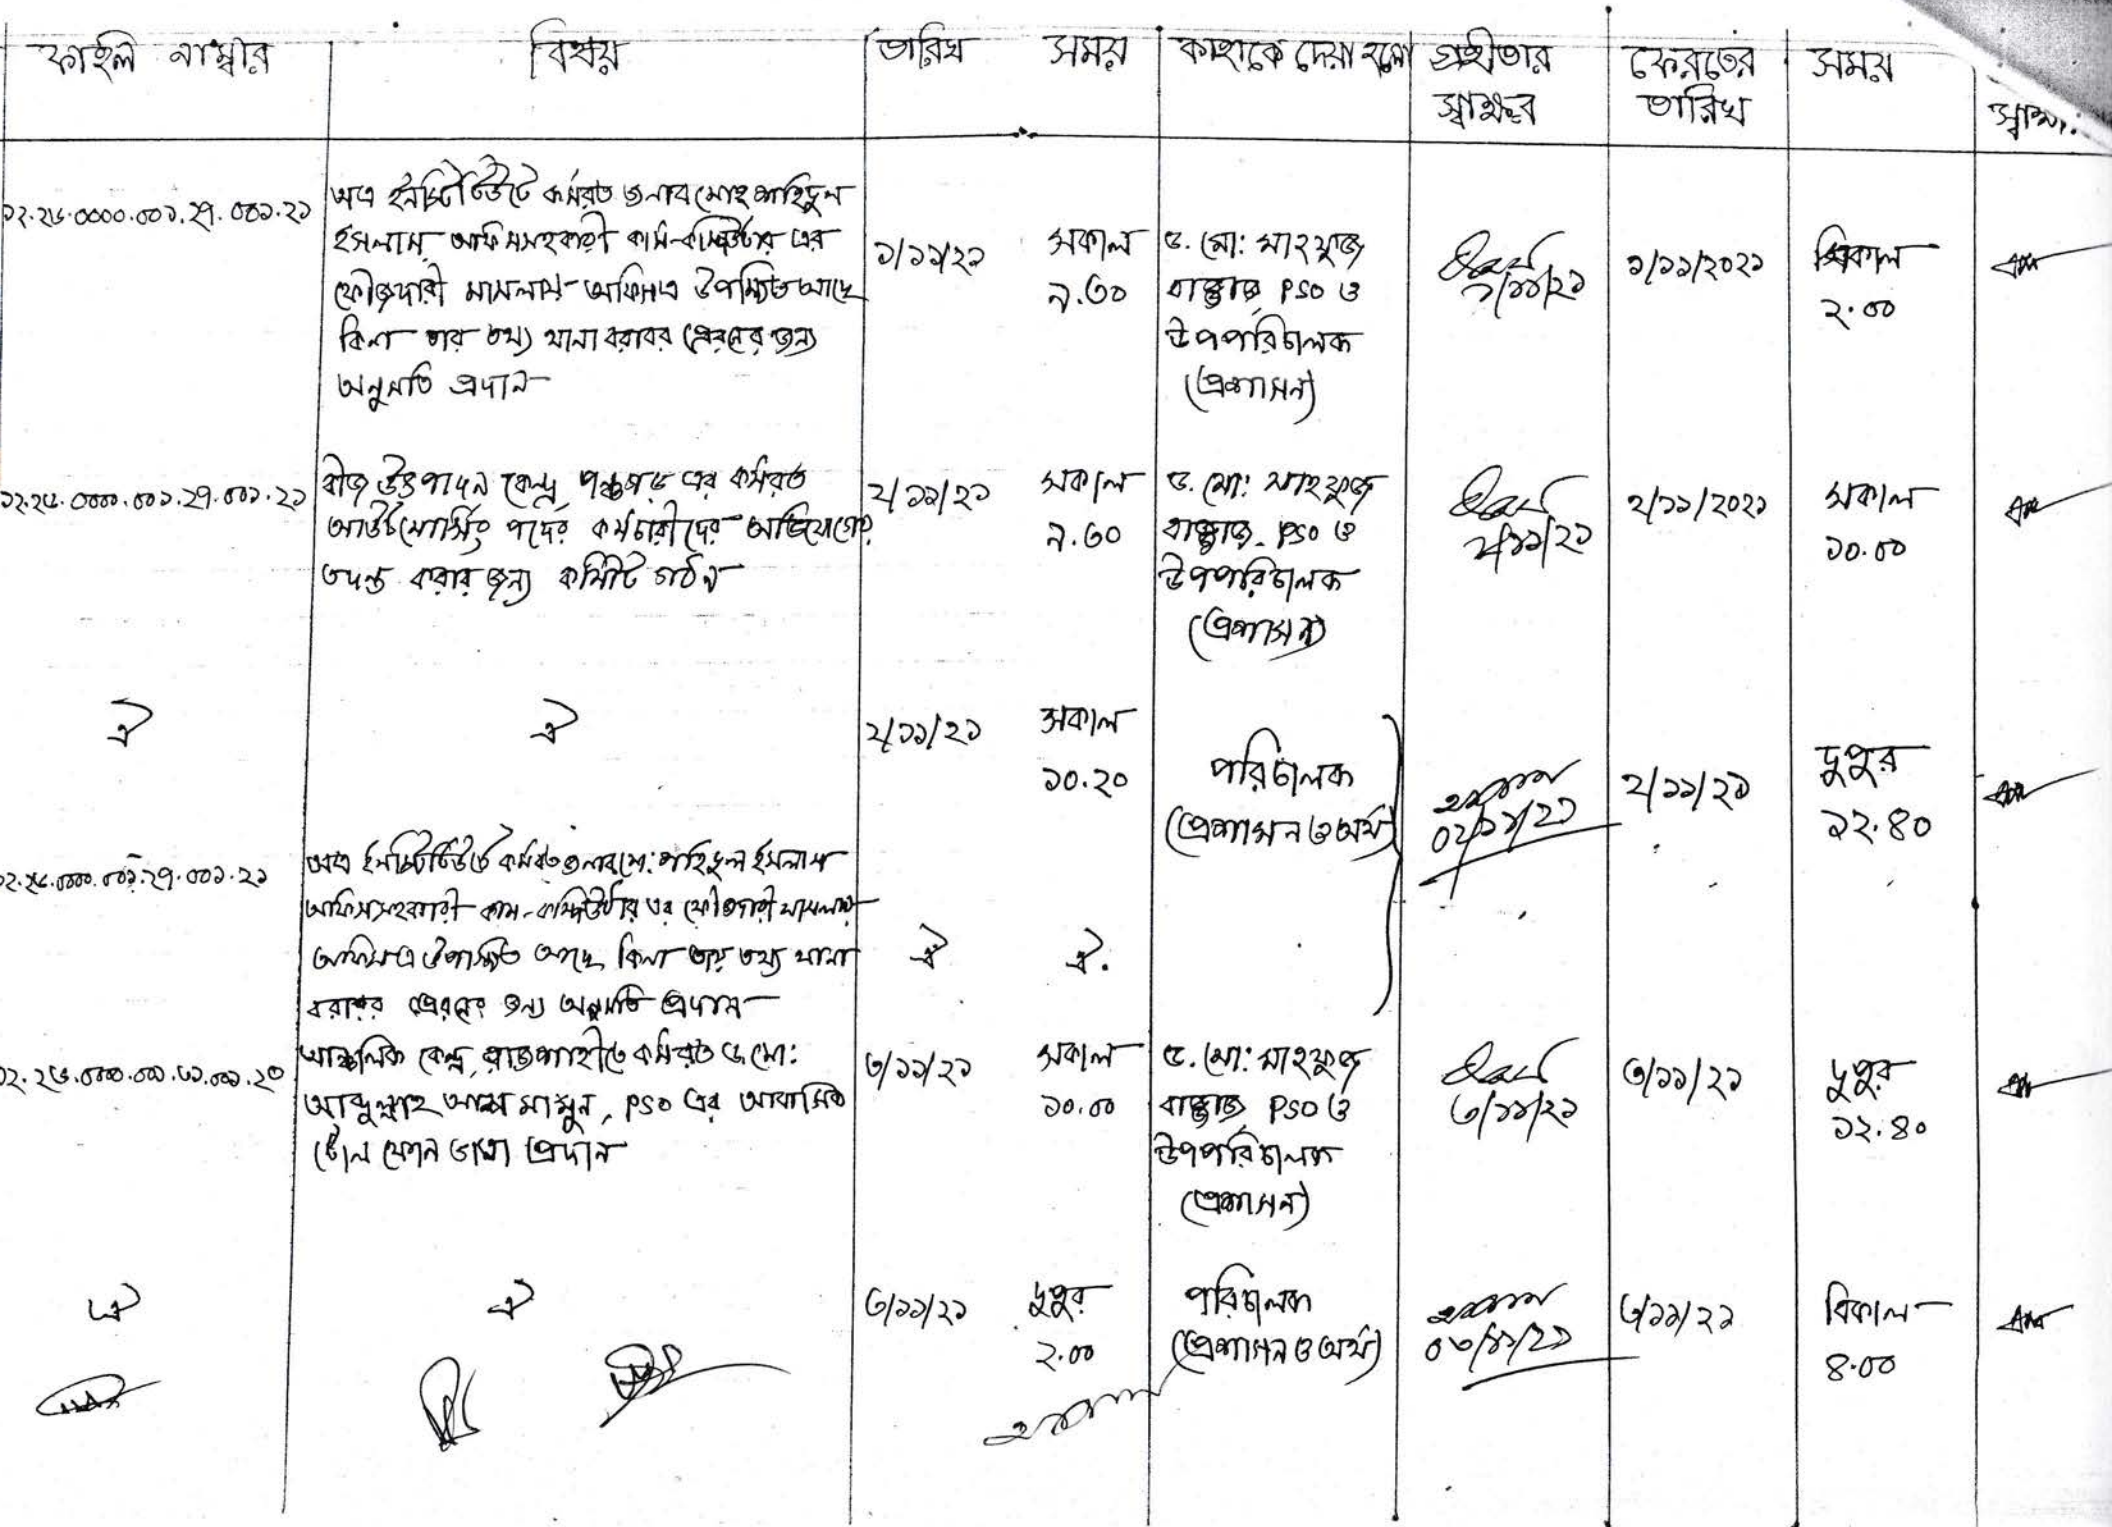 ফাইল নাম্বার বিষয় তারিখ সময় কাহাকে দেয়া হলো গ্রহীতার স্বাক্ষর ফেরতের তারিখ সময়
১২.২৬.০০০০.০০১.২৭.০০১.২১
অত্র ইনস্টিটিউটে কর্মরত জনাব মোঃ শহিদুল
ইসলাম অফিস সহকারী কাম-কম্পিউটার এর
ফৌজদারী মামলায় অফিসএ উপস্থিত আছে
কিনা তার তথ্য থানা বরাবর প্রেরনের জন্য
অনুমতি প্রদান
১/১১/২১
সকাল
৯.৩০
ড. মো: মাহফুজ
বাজ্জাজ, PSO ও
উপপরিচালক
(প্রশাসন)
১/১১/২১
১/১১/২০২১
বিকাল
২.০০
১২.২৬.০০০০.০০১.২৭.০০১.২১
বীজ উৎপাদন কেন্দ্র, পঞ্চগড় এর কর্মরত
আউটসোর্সিং পদের কর্মচারীদের অভিযোগের
তদন্ত করার জন্য কমিটি গঠন
২/১১/২১
সকাল
৯.৩০
ড. মো: মাহফুজ
বাজ্জাজ, PSO ও
উপপরিচালক
(প্রশাসন)
২/১১/২১
২/১১/২০২১
সকাল
১০.০০
ঐ
ঐ
২/১১/২১
সকাল
১০.২০
পরিচালক
(প্রশাসন ও অর্থ)
০২/১১/২১
২/১১/২১
দুপুর
১২.৪০
২.২৬.০০০০.০০১.২৭.০০১.২১
অত্র ইনস্টিটিউটে কর্মরত জনাব মো: শহিদুল ইসলাম
অফিস সহকারী কাম-কম্পিউটার এর ফৌজদারী মামলায়
অফিসএ উপস্থিত আছে কিনা তার তথ্য থানা
বরাবর প্রেরনের জন্য অনুমতি প্রদান
ঐ
ঐ.
২.২৬.০০০০.০০১.৩১.০০১.২০
আঞ্চলিক কেন্দ্র, রাজশাহীতে কর্মরত ড. মো:
আব্দুল্লাহ আল মামুন, PSO এর আবাসিক
টেলিফোন ভাতা প্রদান
৩/১১/২১
সকাল
১০.০০
ড. মো: মাহফুজ
বাজ্জাজ, PSO ও
উপপরিচালক
(প্রশাসন)
৩/১১/২১
৩/১১/২১
দুপুর
১২.৪০
ঐ
ঐ
৩/১১/২১
দুপুর
২.০০
পরিচালক
(প্রশাসন ও অর্থ)
০৩/১১/২১
৩/১১/২১
বিকাল
৪.০০